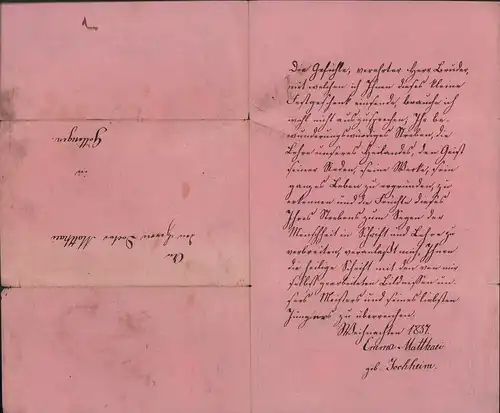 Die Gefühle, verehrter Herr Bruder,
mit welchen ich Ihnen dieses kleine
Festgeschenk einsende, brauche ich
wohl nicht auszusprechen, Ihr be-
wunderungswürdiges Streben, die
Lehre unseres Heilandes, den Geist
seiner Reden, seine Werke, sein
ganzes Leben zu ergründen, zu
erkennen und die Früchte dieses
Ihres Strebens zum Segen der
Menschheit in Schrift und Lehre zu
verbreiten, veranlaßt mich, Ihnen
die heilige Schrift mit den von mir
selbst gearbeiteten Bildnissen un-
sers Meisters und seines liebsten
Jüngers zu überreichen.
Weihnachten 1837.
Emma Matthaei
geb. Jochheim.
An
den Herrn Doctor Matthaei
in
Göttingen